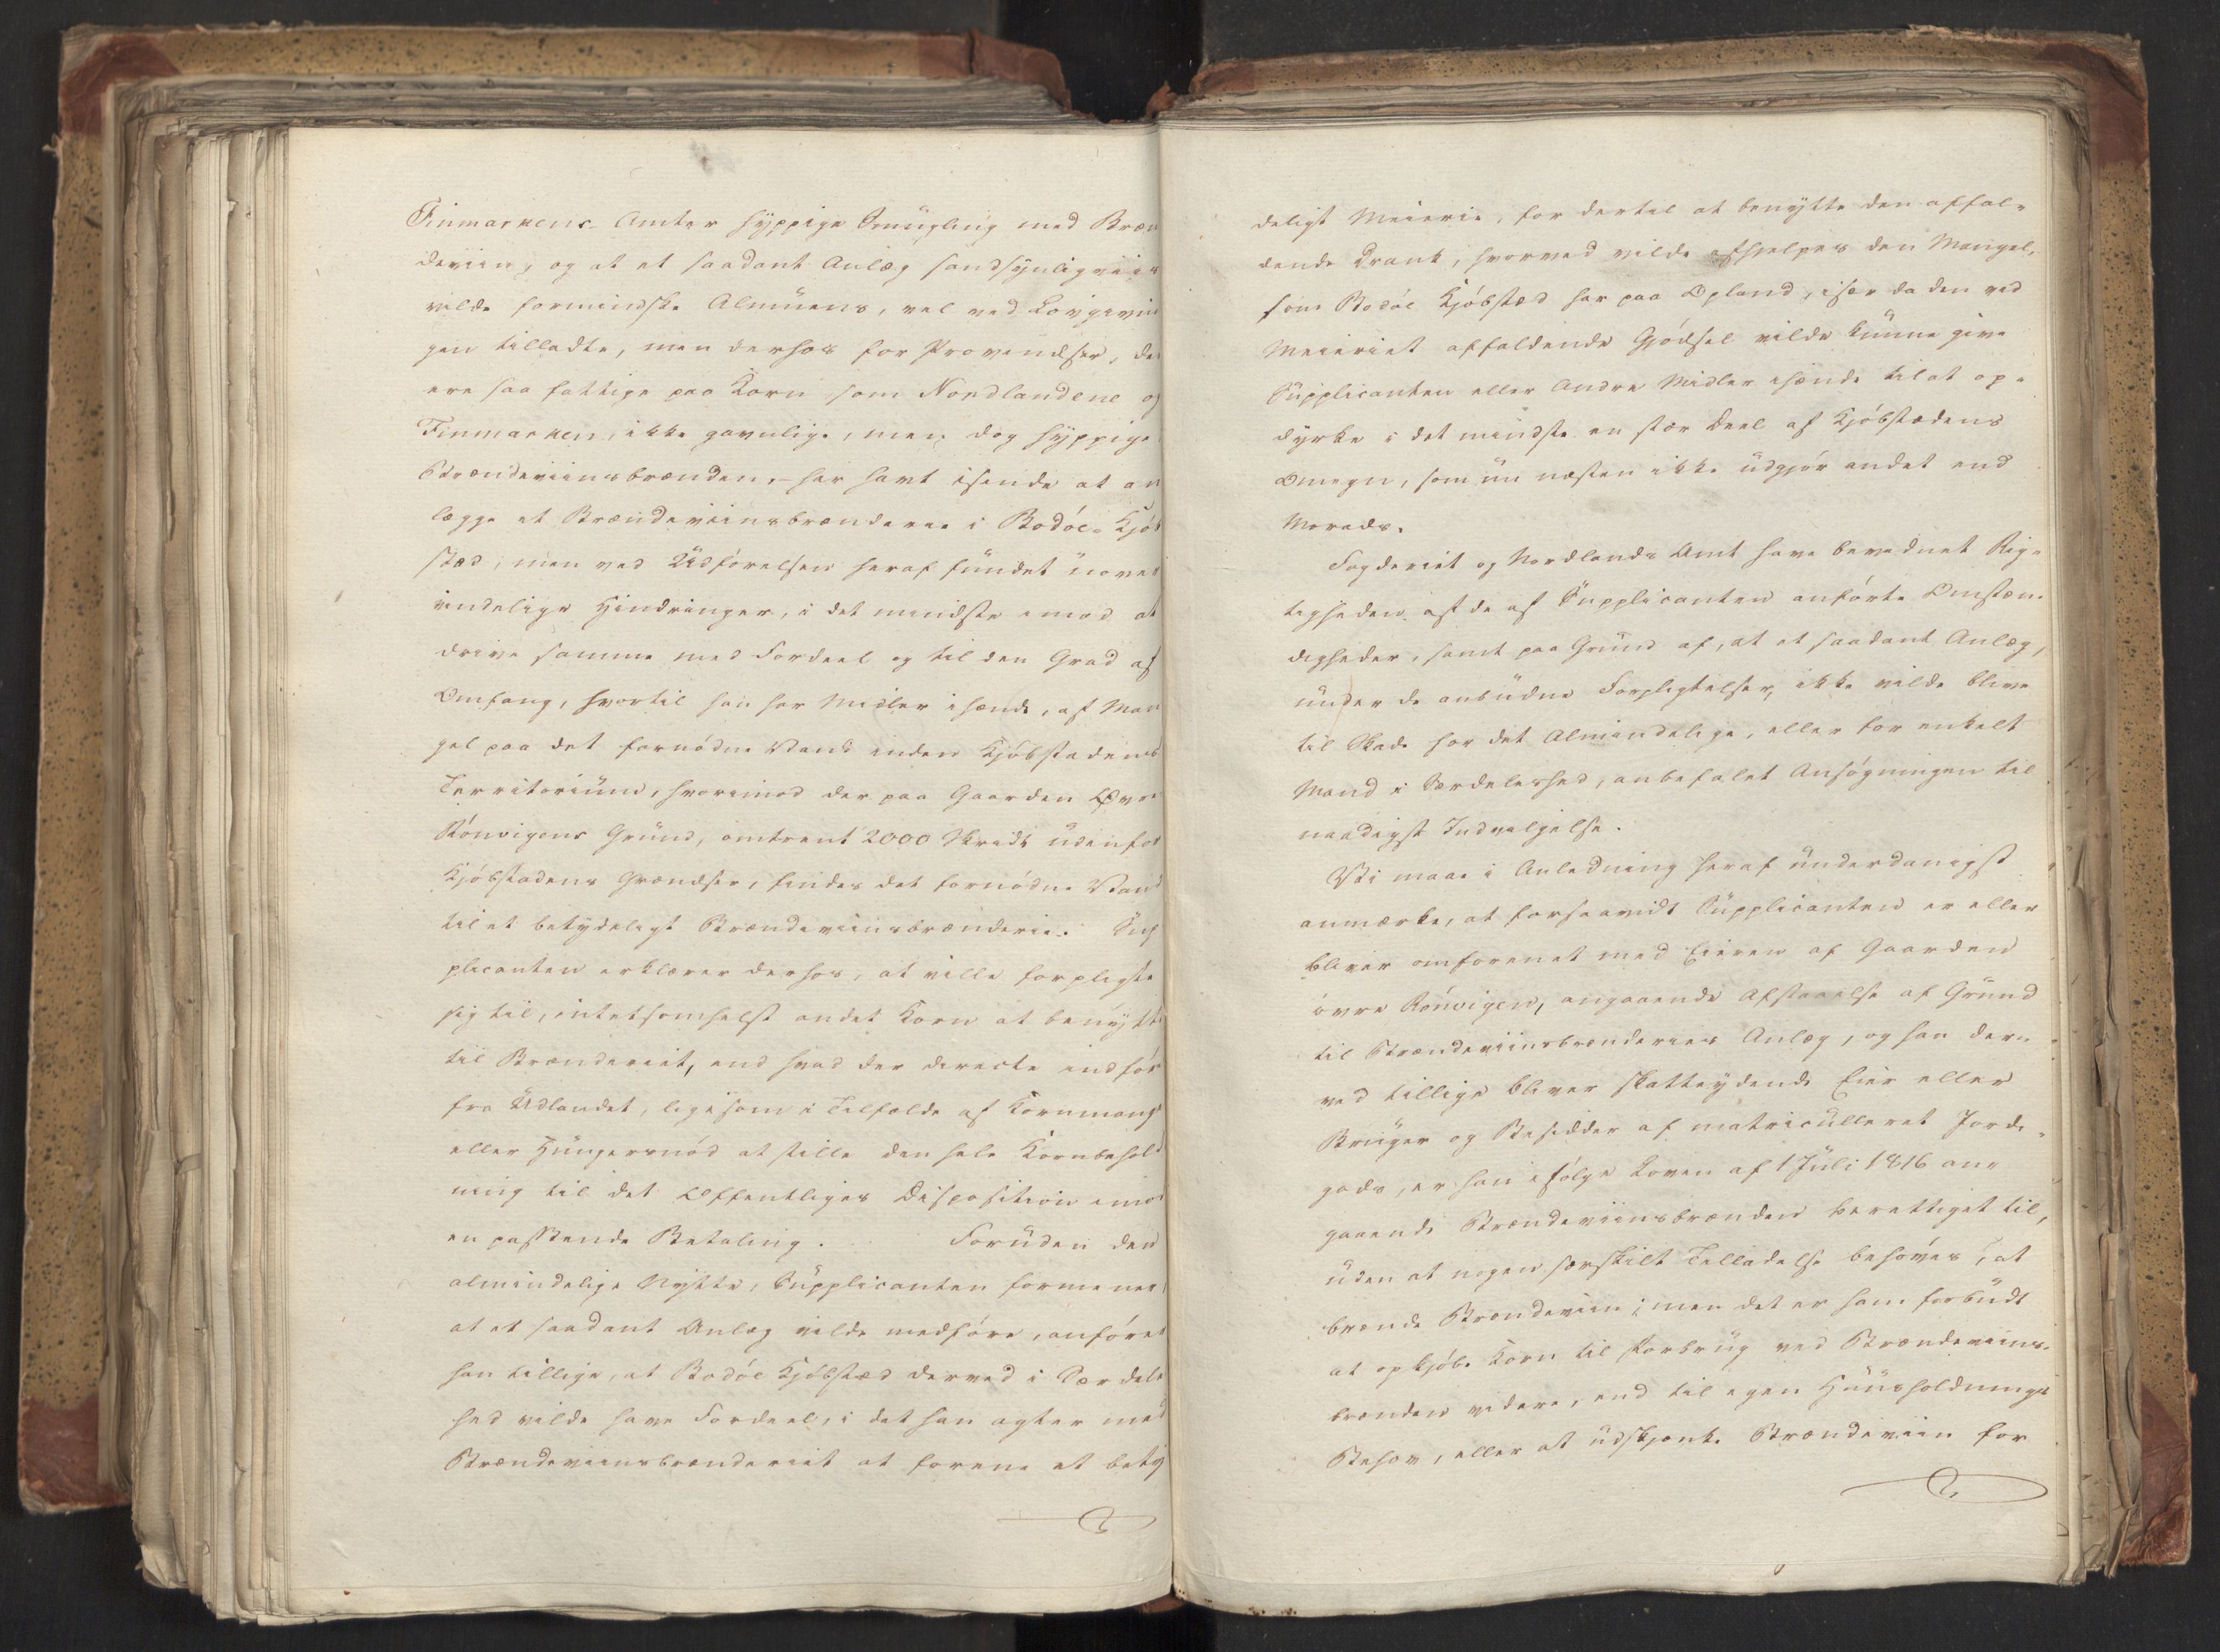 Finmarkens Amter hyppige Smugling med Bræn
deviin, og at et saadant Anlæg sandsynligviis
vilde formindske Almuens, vel ved Lovgivnin
gen tilladte, men derhos for Provindser, der
ere saa fattige paa Korn som Nordlandene og
Finmarken, ikke gavnlige, men dog hyppige
Brændeviinsbrænden, – har havt isinde at an
lægge et Brændeviinsbrænderie i Bodöe Kjöb
stæd, men ved Udförelsen heraf fundet uover
vindelige Hindringer, i det mindste imod at
drive samme med Fordeel og til den Grad af
Omfang, hvortil han har Midler ihænde, af Man
gel paa det fornödne Vand inden Kjöbstedens
Territorium, hvorimod der paa Gaarden Övre
Rönvigens Grund, omtrent 2000 Skridt udenfor
Kjöbstadens Grændser, findes det fornödne Vand
til et betydeligt Brændeviinsbrænderie. Sup
plicanten erklærer derhos, at ville forpligte
sig til, intetsomhelst andet Korn at benytte
til Brænderiet, end hvad der directe indför
fra Udlandet, ligesom i Tilfælde af Kornmang
eller Hungersnöd at stille den hele Kornbehold
ning til det Offentliges Disposition imod
en passende Betaling. Foruden den
almindelige Nytte, Supplicanten formener
at et saadant Anlæg vilde medföre, anförer
han tillige, at Bodöe Kjöbstæd derved i Særdeles
hed vilde have Fordeel, i det han agter med
Brændeviinsbrænderiet at forene et bety
deligt Meierie, for dertil at benytte den affal-
dende Drank, hvorved vilde afhjelpes den Mangel,
som Bodöe Kjöbstæd har paa Opland, især da den ved
Meieriet affaldende Gjödsel vilde kunne give
Supplicanten eller Andre Midler ihænde til at op-
dyrke i det mindste en stor Deel af Kjöbstædens
Omegn, som nu næsten ikke udgjör andet end
Morads.
Fogderiet og Nordlands Amt have bevidnet Rig-
tigheden af de af Supplicanten anförte Omstæn-
digheder, samt paa Grund af, at et saadant Anlæg,
under de anbudne Forpligtelser, ikke vilde blive
til Skade for det Almindelige, eller for enkelt
Mand i Særdeleshed, anbefalet Ansögningen til
naadigst Indvilgelse.
Vi maae i Anledning heraf underdanigst
anmærke, at forsaavidt Supplicanten er eller
bliver omforenet med Eieren af Gaarden
övre Rönvigen, angaaende Afstaaelse af Grund
til Brændeviinsbrænderiets Anlæg, og han der-
ved tillige bliver skatteydende Eier eller
Bruger og Besidder af matriculleret Jorde-
gods, er han ifölge Loven af 1 Juli 1816 an-
gaaende Brændeviinsbrænden berettiget til,
uden at nogen særskilt Tilladelse behöves, at
brænde Brændeviin; men det er ham forbudt
at opkjöbe Korn til Forbrug ved Brændeviins-
brænden videre, end til egen Huusholdnings
Behov, eller at udskjenke Brændeviin for